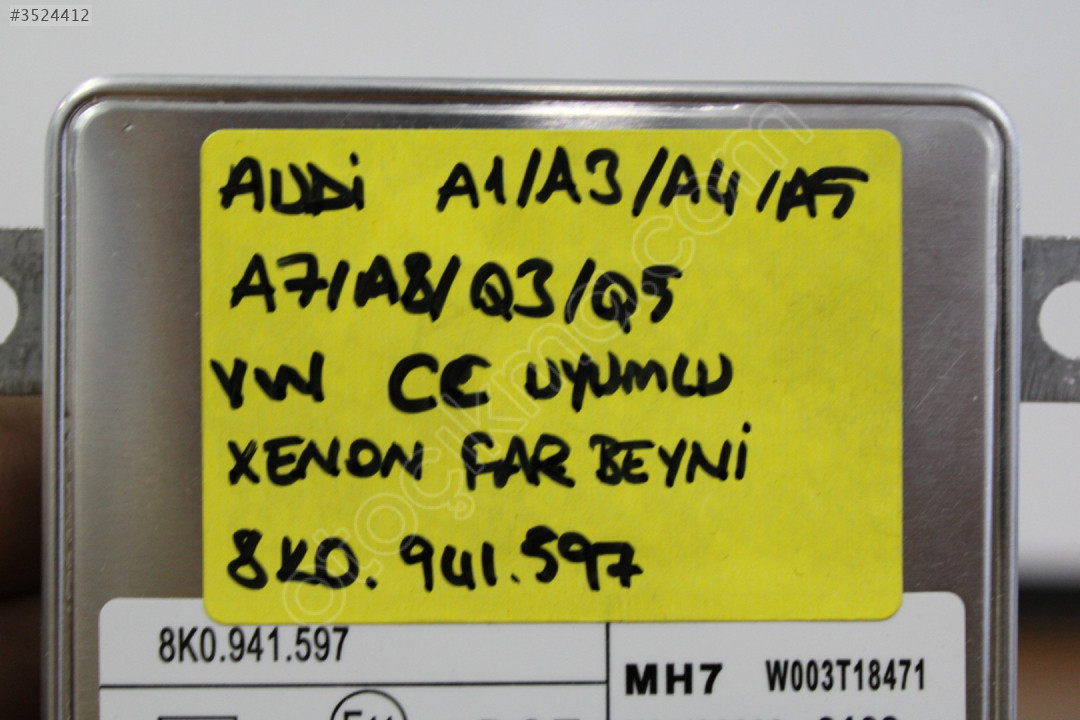 #3524412
AUDİ A1/A3/A4/A5
A7/A8/Q3/Q5
VW CC UYUMLU
XENON FAR BEYNİ
8K0.941.597
otoçıkma.com
8K0.941.597
MH7 W003T18471